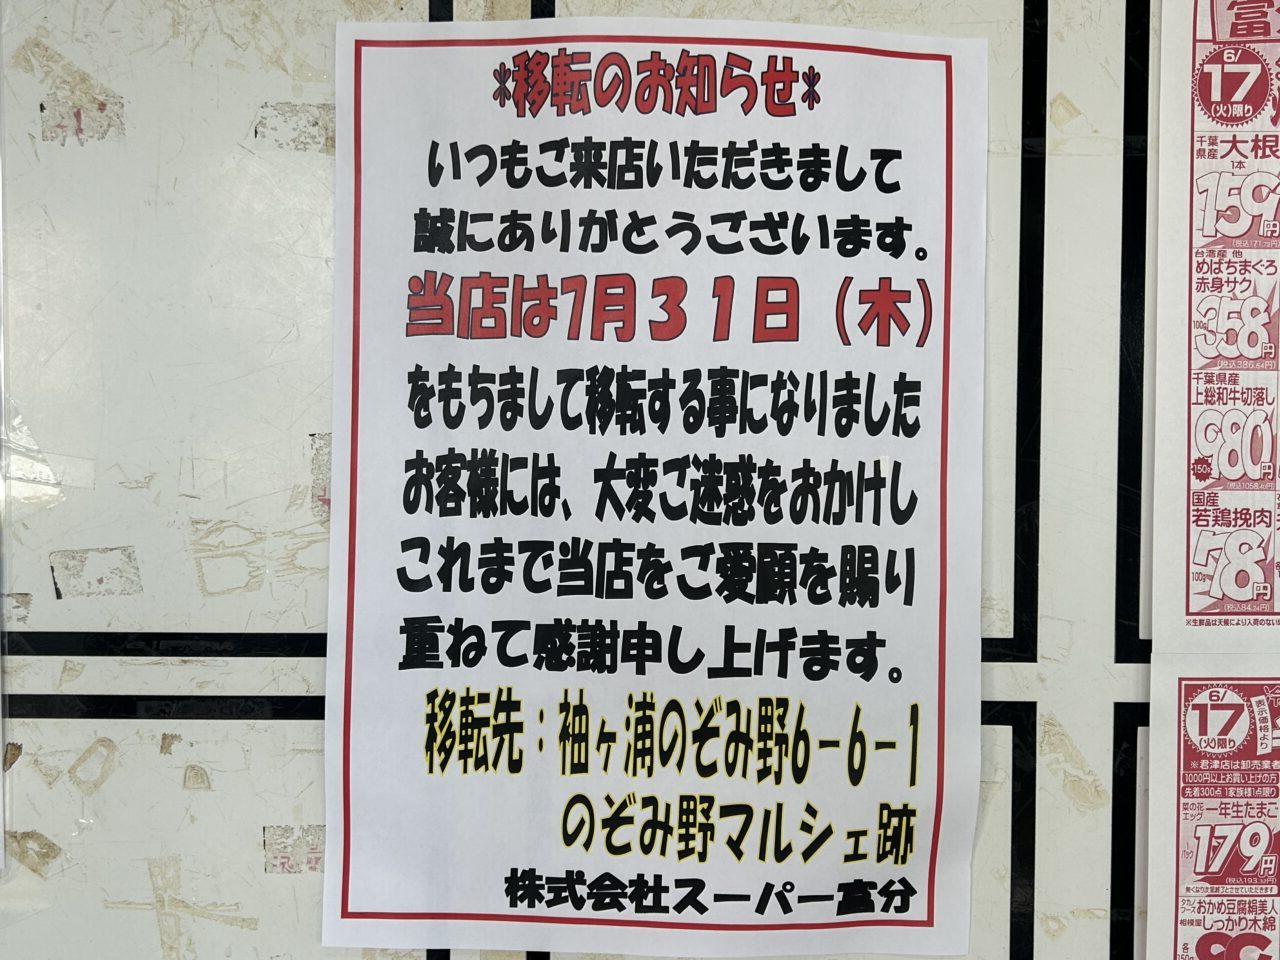 *移転のお知らせ*
いつもご来店いただきまして
誠にありがとうございます。
当店は7月31日（木）
をもちまして移転する事になりました
お客様には、大変ご迷惑をおかけし
これまで当店をご愛顧を賜り
重ねて感謝申し上げます。
移転先：袖ヶ浦のぞみ野6-6-1
のぞみ野マルシェ跡
株式会社スーパー富分
富
6/
17
(火)限り
千葉
県産
大根
1本
159
円
(税込171.72円)
台湾産 他
めばちまぐろ
赤身サク
100g
358
円
(税込386.64円)
千葉県産
上総和牛切落し
980
円
150g
(税込1058.40円)
国産
若鶏挽肉
100g
78
円
(税込84.24円)
※生鮮品は天候により入荷のない
6/
17
(火)限り
表示価格より
※君津店は卸売業者
1000円以上お買い上げの方
先着300点 1家族様1点限り
菜の花
エッグ
一年生たまご
1パック
179
円
(税込193.32円)
無くなり次第終了とさせていただきます
タカノ
フーズ
おかめ豆腐絹美人
相模屋
しっかり木綿
各
150g